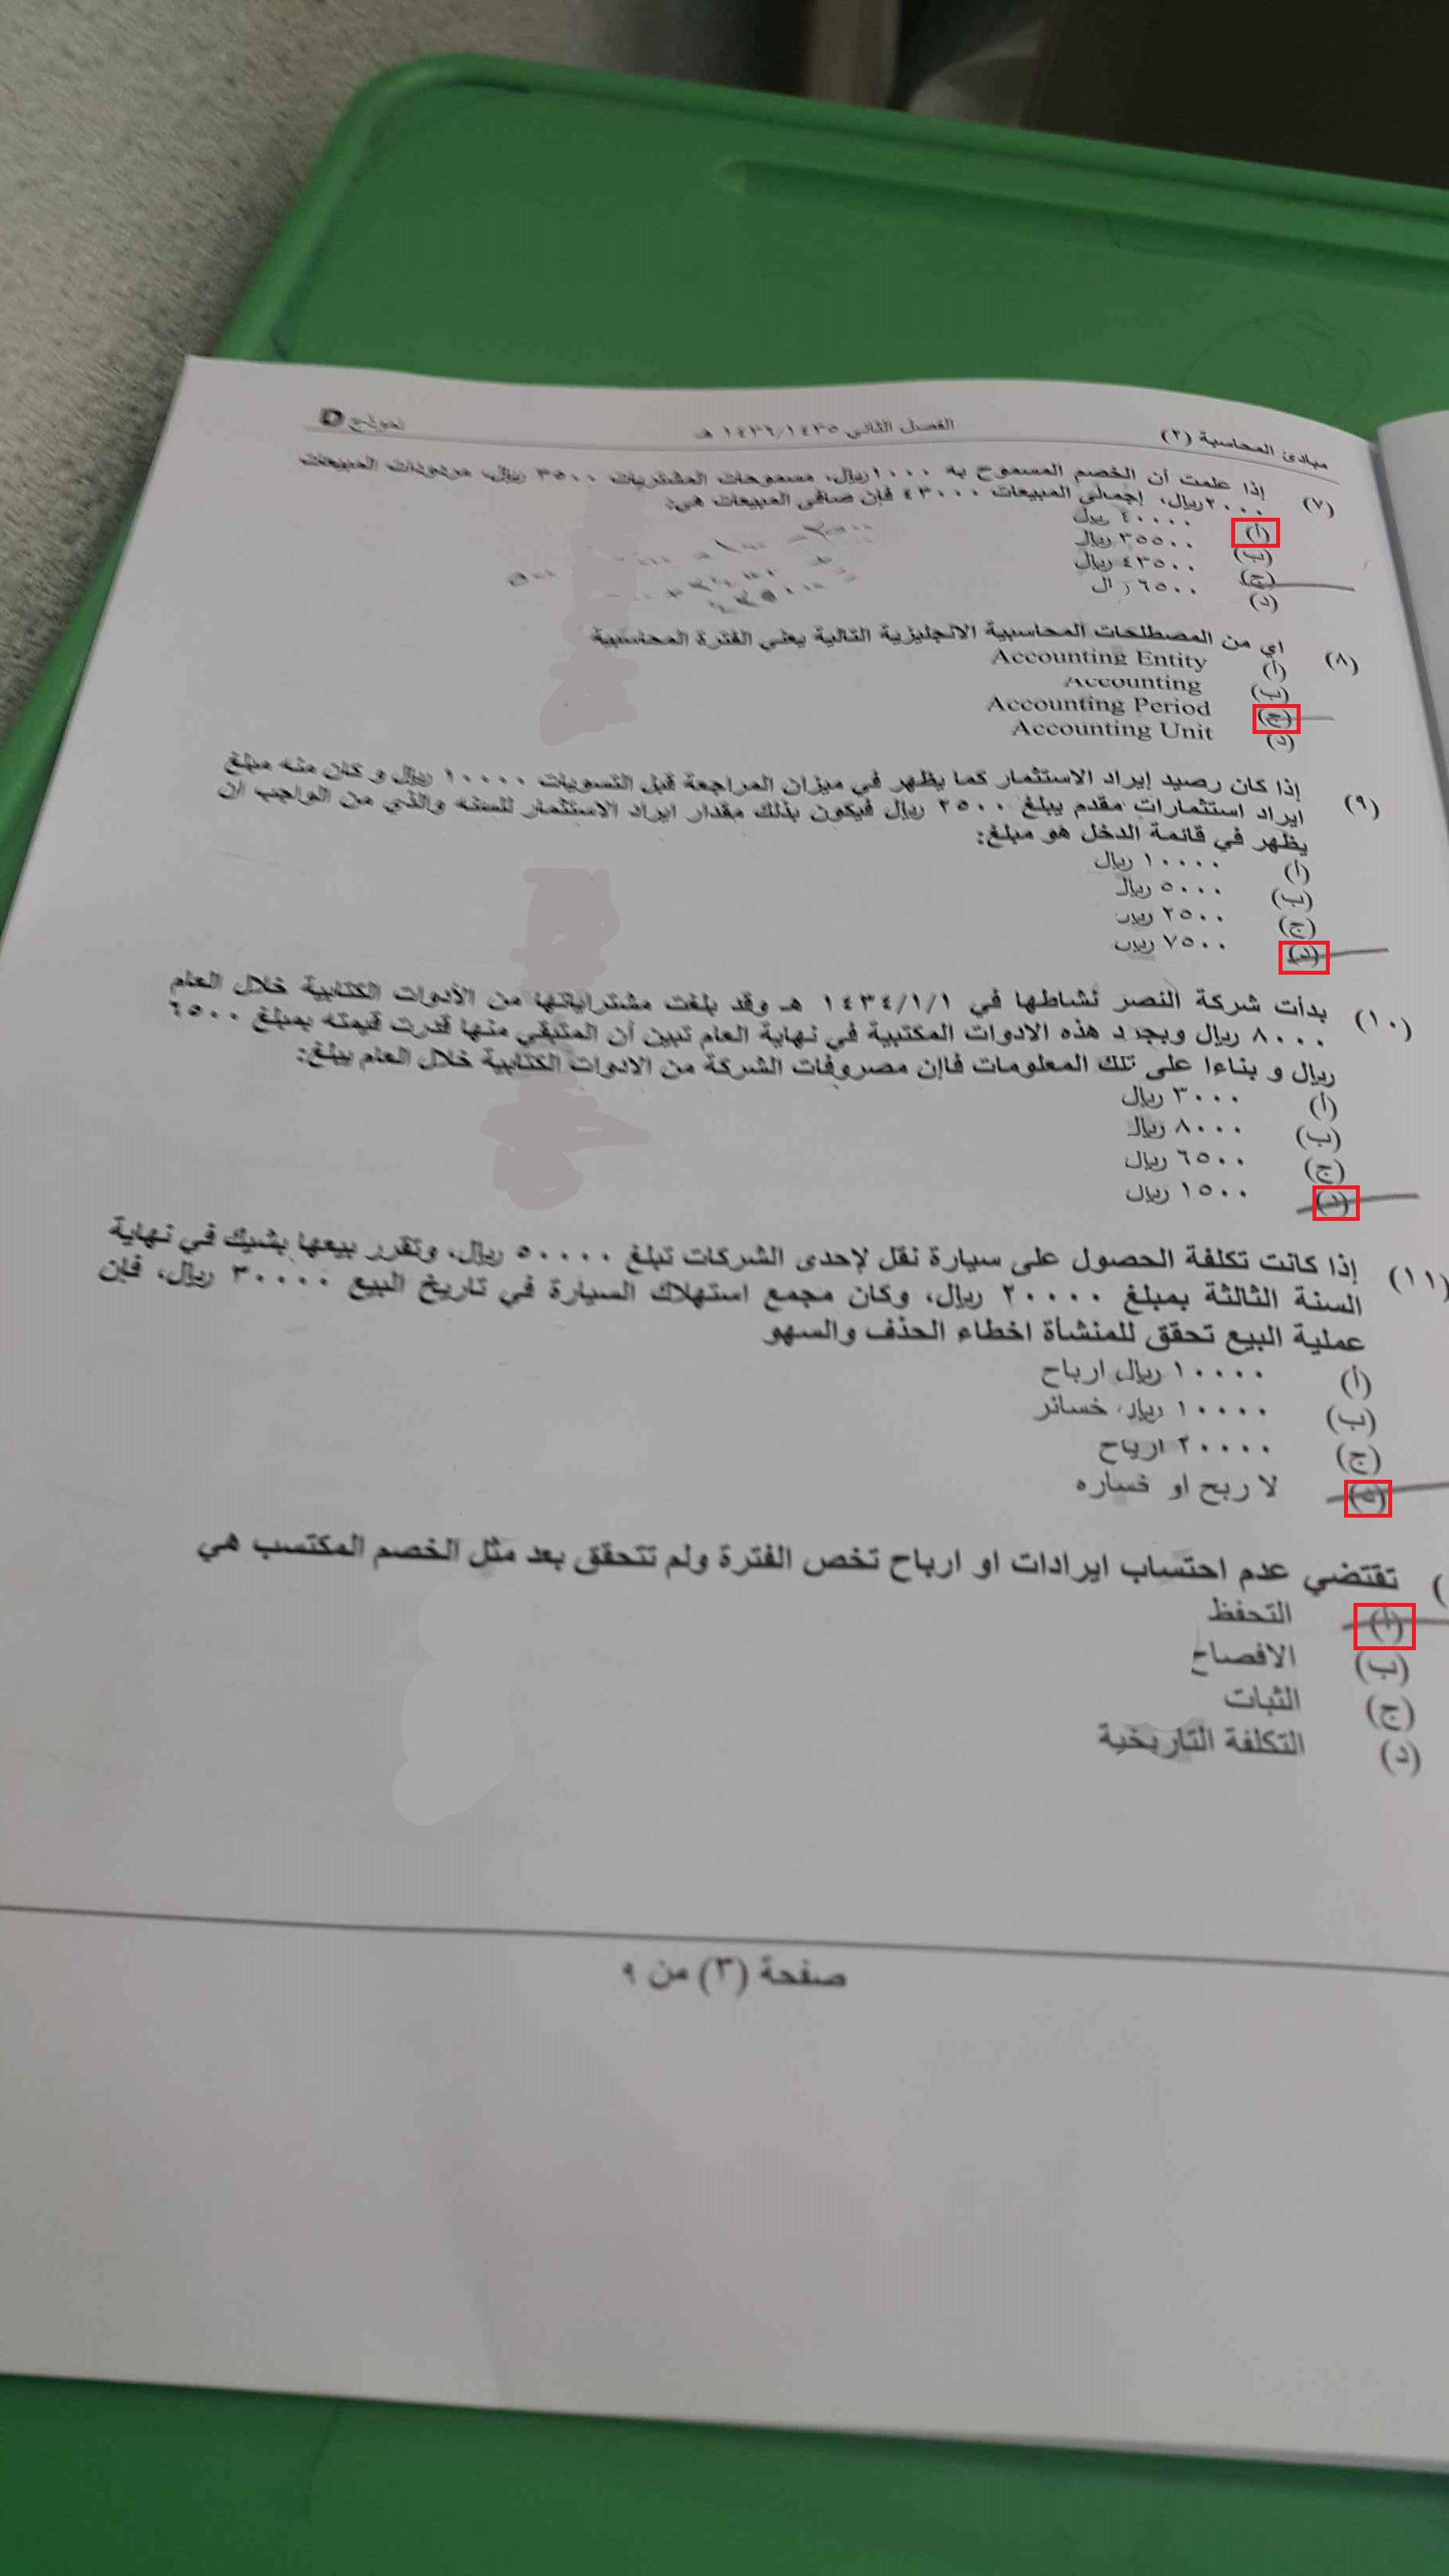 مبادئ المحاسبة (٢) الفصل الثاني ١٤٣٦/١٤٣٥ هـ نموذج D
(٧) إذا علمت أن الخصم المسموح به ١٠٠٠ريال، مسموحات المشتريات ٣٥٠٠ ريال، مردودات المبيعات
٢٠٠٠ريال، إجمالي المبيعات ٤٣٠٠٠ فإن صافي المبيعات هي:
(أ) ٤٠٠٠٠ ريال
(ب) ٣٥٥٠٠ ريال
(ج) ٤٣٥٠٠ ريال
(د) ٦٥٠٠
(٨) اي من المصطلحات المحاسبية الانجليزية التالية يعني الفترة المحاسبية
(أ) Accounting Entity
(ب) Accounting
(ج) Accounting Period
(د) Accounting Unit
(٩) إذا كان رصيد إيراد الاستثمار كما يظهر في ميزان المراجعة قبل التسويات ١٠٠٠٠ ريال و كان منه مبلغ
ايراد استثمارات مقدم يبلغ ٢٥٠٠ ريال فيكون بذلك مقدار ايراد الاستثمار للسنه والذي من الواجب ان
يظهر في قائمة الدخل هو مبلغ:
(أ) ١٠٠٠٠ ريال
(ب) ٥٠٠٠ ريال
(ج) ٢٥٠٠ ريال
(د) ٧٥٠٠ ريال
(١٠) بدأت شركة النصر نشاطها في ١٤٣٤/١/١ هـ وقد بلغت مشترياتها من الأدوات الكتابية خلال العام
٨٠٠٠ ريال وبجرد هذه الادوات المكتبية في نهاية العام تبين أن المتبقي منها قدرت قيمته بمبلغ ٦٥٠٠
ريال و بناءا على تلك المعلومات فاإن مصروفات الشركة من الادوات الكتابية خلال العام يبلغ:
(أ) ٣٠٠٠ ريال
(ب) ٨٠٠٠ ريال
(ج) ٦٥٠٠ ريال
(د) ١٥٠٠ ريال
(١١) إذا كانت تكلفة الحصول على سيارة نقل لإحدى الشركات تبلغ ٥٠٠٠٠ ريال، وتقرر بيعها بشيك في نهاية
السنة الثالثة بمبلغ ٢٠٠٠٠ ريال، وكان مجمع استهلاك السيارة في تاريخ البيع ٣٠٠٠٠ ريال، فإن
عملية البيع تحقق للمنشأة اخطاء الحذف والسهو
(أ) ١٠٠٠٠ ريال ارباح
(ب) ١٠٠٠٠ ريال خسائر
(ج) ٢٠٠٠٠ ارباح
(د) لا ربح او خساره
تقتضي عدم احتساب ايرادات او ارباح تخص الفترة ولم تتحقق بعد مثل الخصم المكتسب هي
(أ) التحفظ
(ب) الافصاح
(ج) الثبات
(د) التكلفة التاريخية
صفحة (٣) من ٩